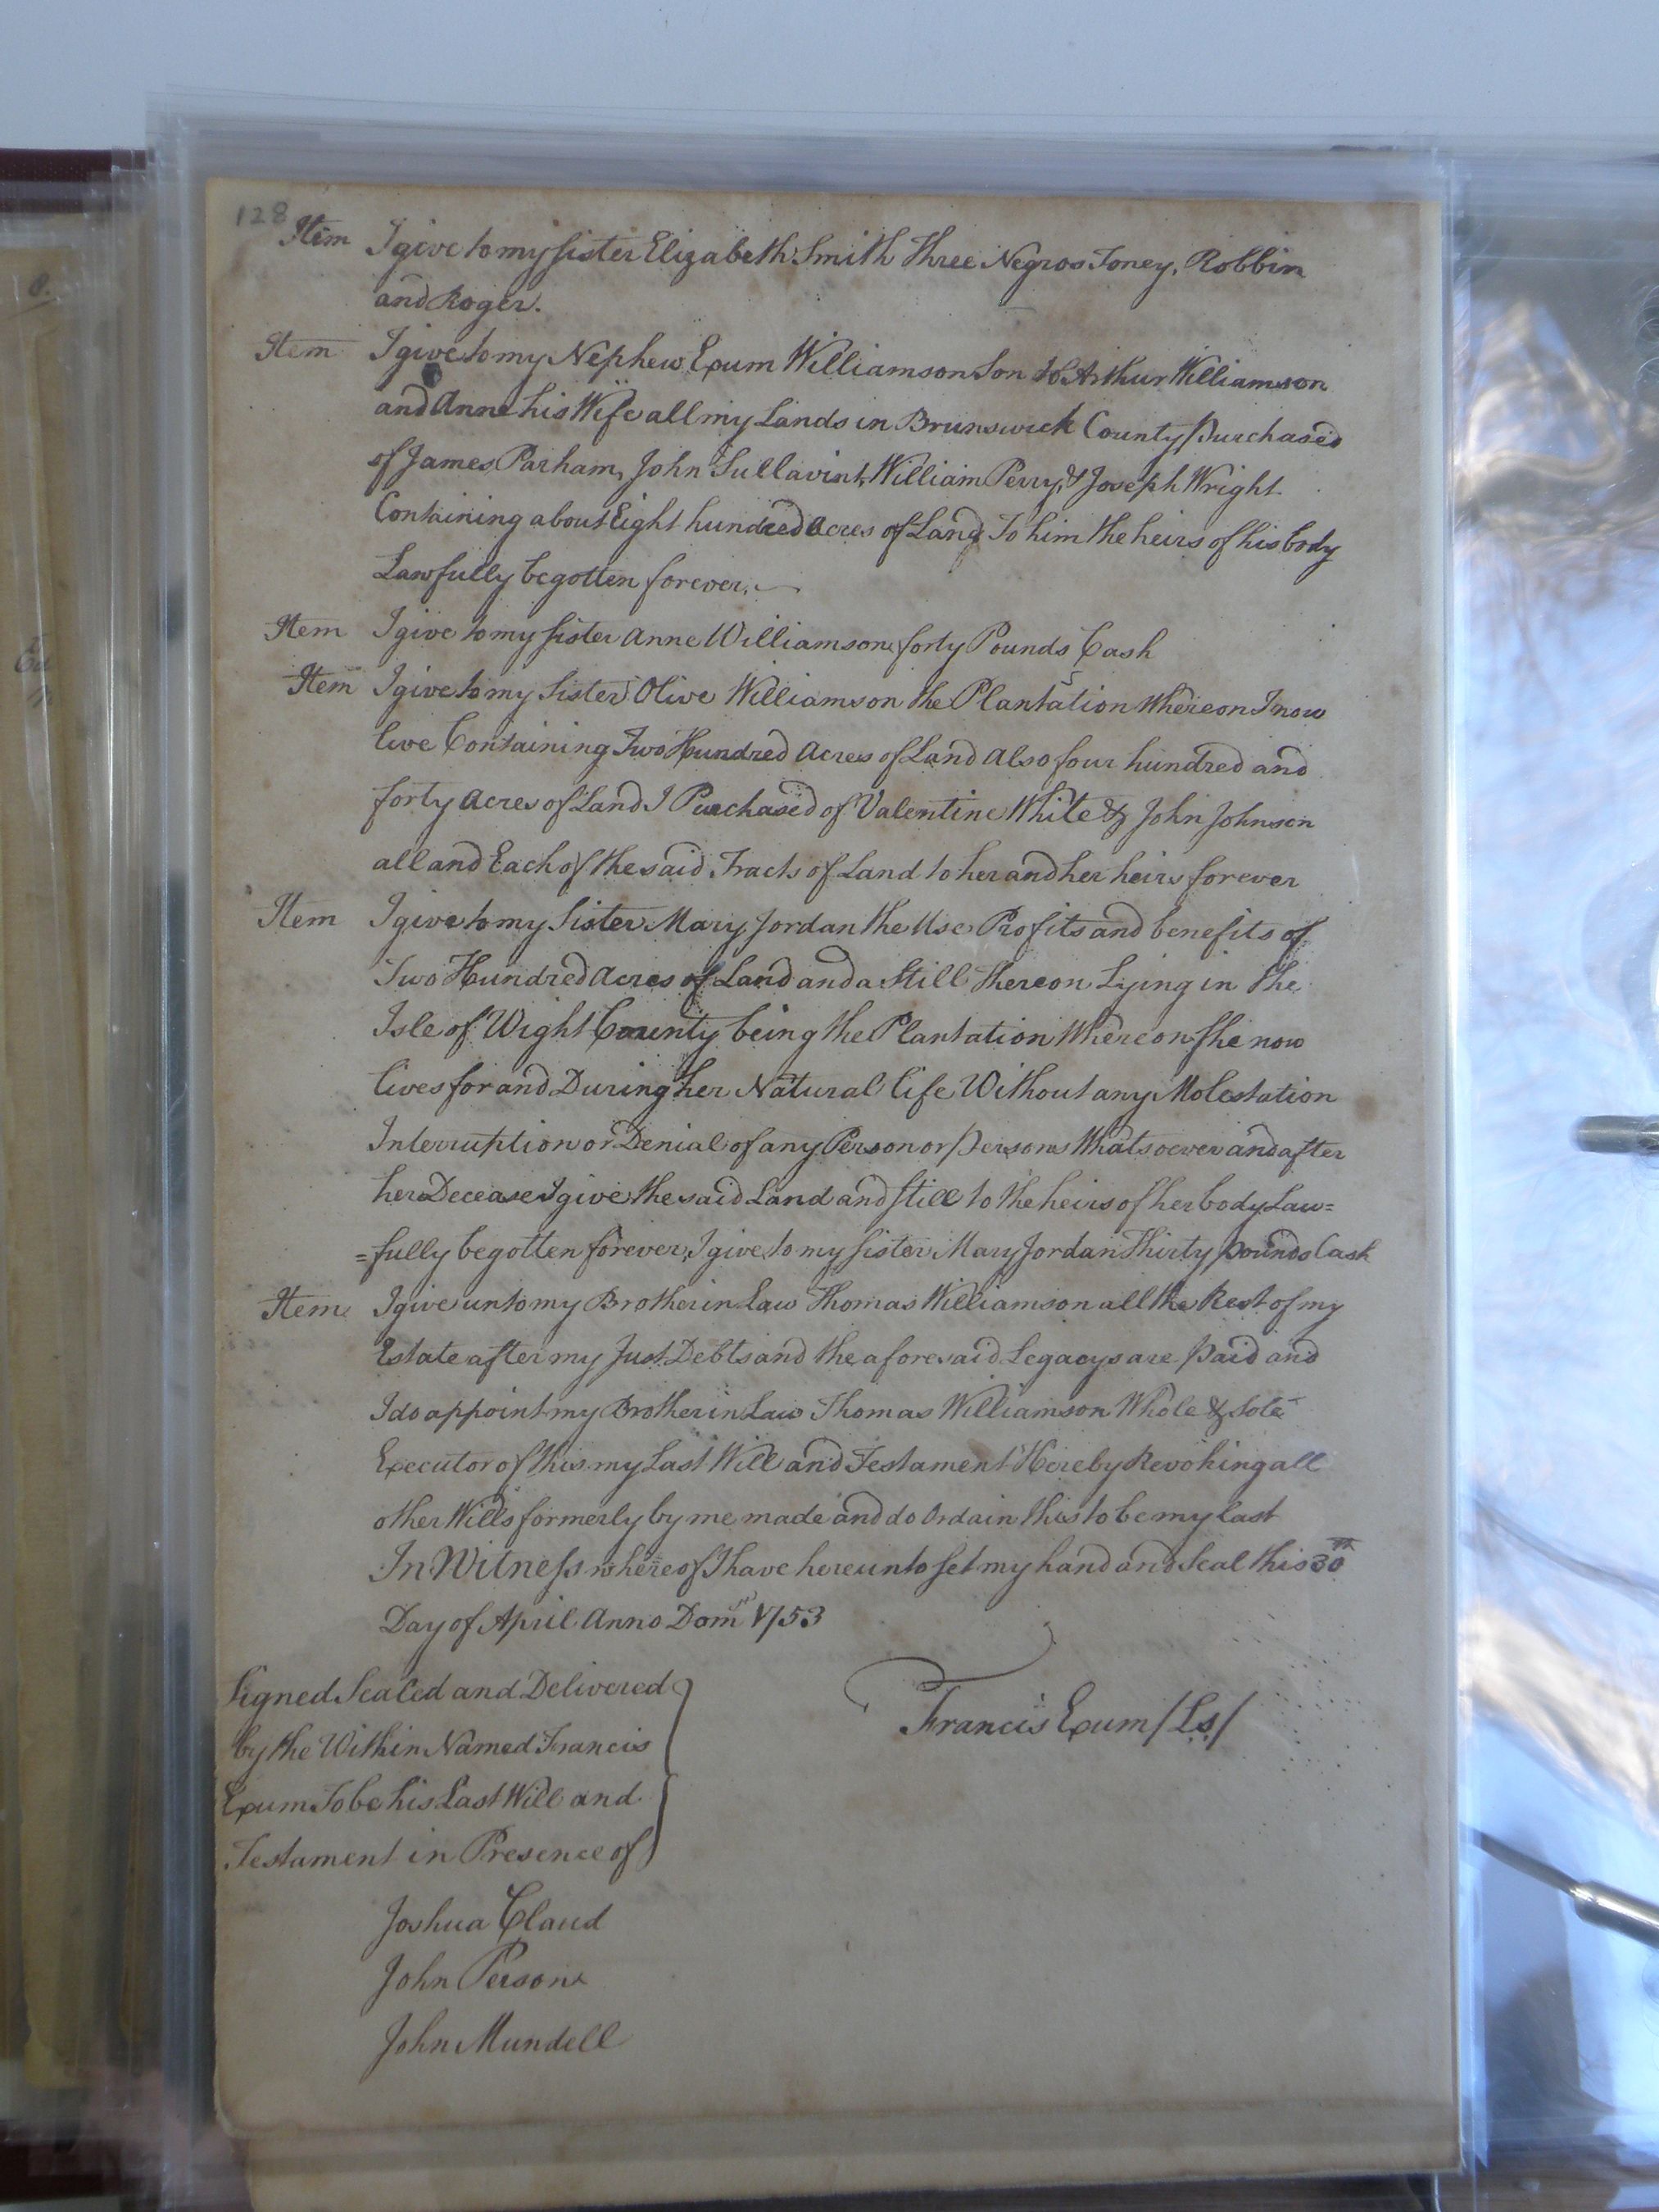 128
Item I give to my sister Elizabeth Smith Three Negros Toney, Robbin
and Roger.
Item I give to my Nephew Exum Williamson Son to Arthur Williamson
and Anne his Wife all my Lands in Brunswick County purchased
of James Parham, John Sullavint, William Perry, & Joseph Wright
Containing about Eight hundred acres of Land To him the heirs of his body
Lawfully begotten forever.
Item I give to my sister Anne Williamson forty Pounds Cash
Item I give to my Sister Olive Williamson the Plantation Whereon I now
live Containing Two Hundred acres of Land also four hundred and
forty acres of Land I Purchased of Valentine White & John Johnson
all and Each of the said Tracts of Land to her and her heirs forever
Item I give to my Sister Mary Jordan the Use Profits and benefits of
Two Hundred acres of Land and a Still thereon Lying in the
Isle of Wight County being the Plantation Whereon she now
lives for and During her Natural life Without any Molestation
Interruption or Denial of any Person or persons Whatsoever and after
her Decease I give the said Land and still to the heirs of her body Law=
=fully begotten forever, I give to my sister Mary Jordan Thirty pounds Cash
Item I give unto my Brother in Law Thomas Williamson all the Rest of my
Estate after my Just Debts and the aforesaid Legacys are paid and
I do appoint my Brother in Law Thomas Williamson Whole & Sole
Executor of this my Last Will and Testament Hereby Revoking all
other Wills formerly by me made and do Ordain this to be my last
In Witness whereof I have hereunto set my hand and Seal this 30th
Day of April Anno Dom 1753
Signed Sealed and Delivered
by the Within Named Francis
Exum To be his Last Will and
Testament in Presence of
Francis Exum /Ls/
Joshua Claud
John Persons
John Mundell